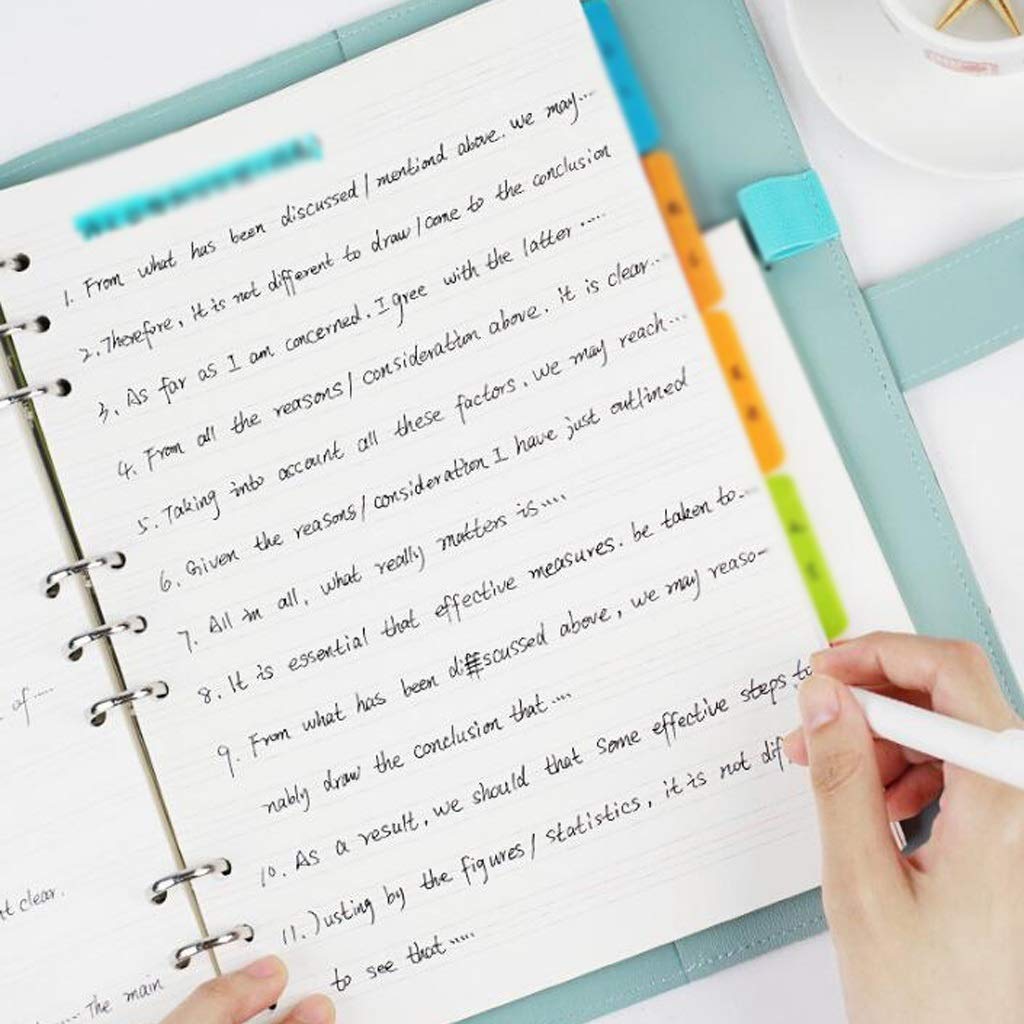 1. From what has been discussed / mentiond above. we may...
2. Therefore, it is not different to draw / come to the conclusion
3. As far as I am concerned. I gree with the latter .....
4. From all the reasons / consideration above. it is clear..
5. Taking into account all these factors. we may reach...
6. Given the reasons / consideration I have just outlined
7. All in all, what really matters is....
8. It is essential that effective measures. be taken to..
9. From what has been discussed above, we may reaso-
nably draw the conclusion that....
10. As a result, we should that some effective steps to
11. Justing by the figures / statistics, it is not dif
to see that.....
of ....
clear.
.... The main